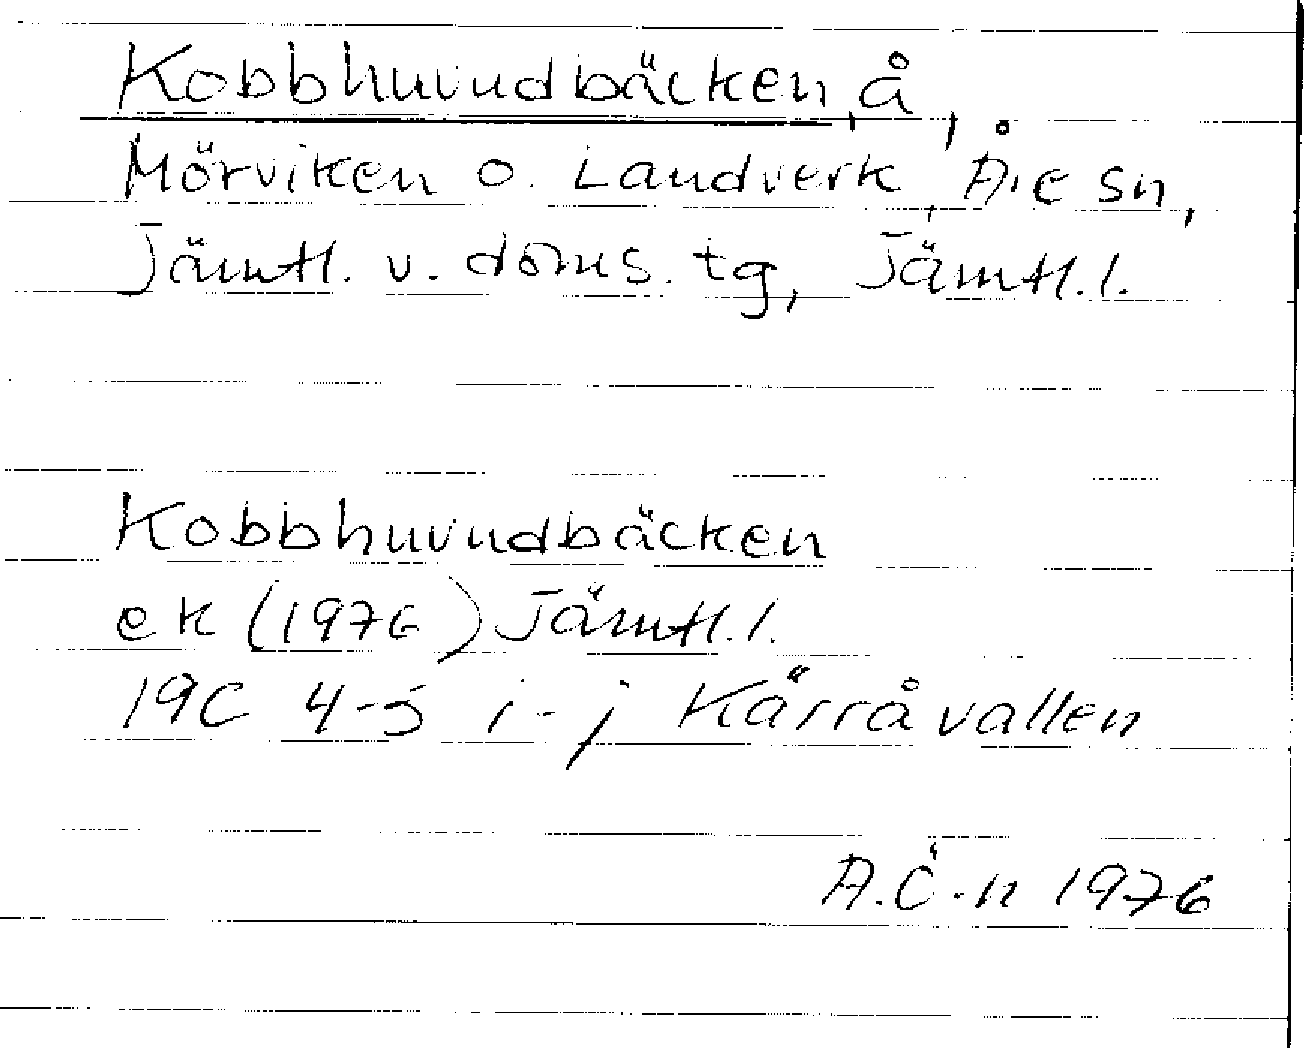 Kobbhuvudbäcken, å,
Mörviken o. Landverk, Åre sn,
Jämtl. v. doms. tg, Jämtl. l.
Kobbhuvudbäcken
ek (1976) Jämtl. l.
19C 4-5 i-j Kårråvallen
A.Ö-n 1976